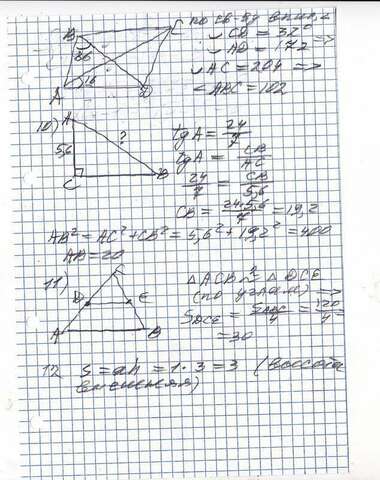 по св-ву впис. ∠
B C
◡ CD = 32°
86
◡ AD = 172 =>
16
◡ AC = 204 =>
A D
∠ ABC = 102
10) A
5,6 ?
C B
tg A = 24/7
tg A = CB/AC
24/7 = CB/5,6
CB = 24·5,6/7 = 19,2
AB² = AC² + CB² = 5,6² + 19,2² = 400
AB = 20
11) C
D E
A B
△ ACB ~ △ DCE
(по углам) =>
S DCE = S ABC/4 = 120/4 =
= 30
12 S = ah = 1·3 = 3 (высота
внешняя)